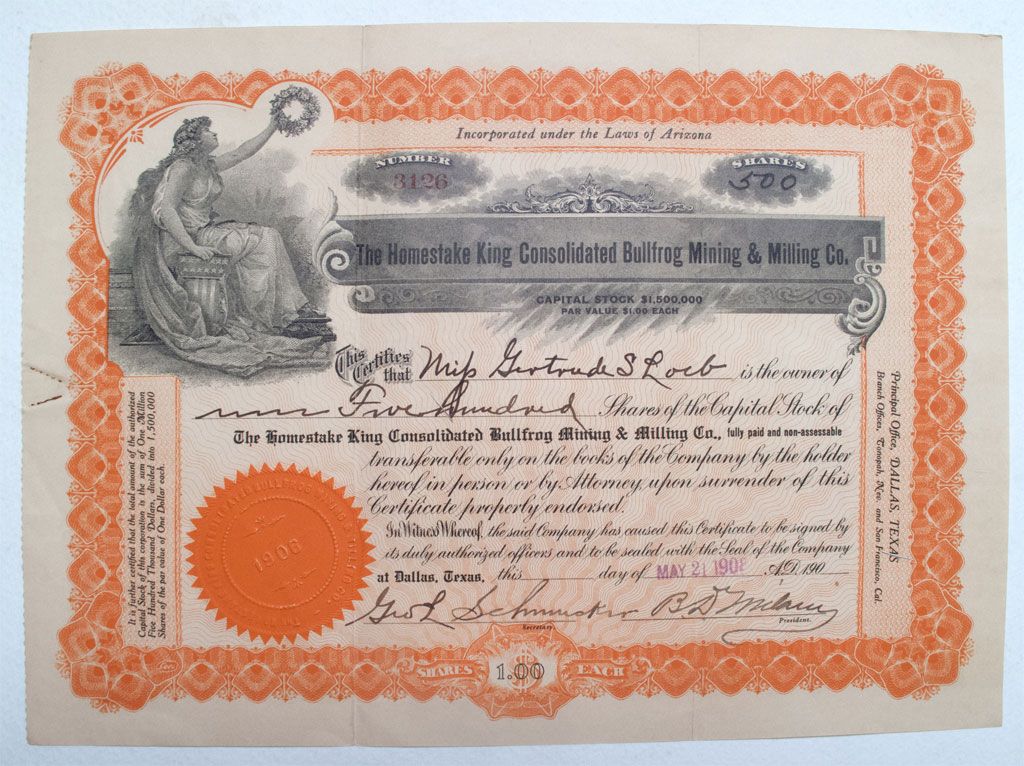 Incorporated under the Laws of Arizona
NUMBER
3126
SHARES
500
The Homestake King Consolidated Bullfrog Mining & Milling Co.
CAPITAL STOCK $1,500,000
PAR VALUE $1.00 EACH
This Certifies that Miss Gertrude S Loeb is the owner of
Five Hundred Shares of the Capital Stock of
The Homestake King Consolidated Bullfrog Mining & Milling Co., fully paid and non-assessable
transferable only on the books of the Company by the holder
hereof in person or by Attorney, upon surrender of this
Certificate properly endorsed.
In Witness Whereof, the said Company has caused this Certificate to be signed by
its duly authorized officers and to be sealed with the Seal of the Company
at Dallas, Texas, this day of MAY 21 190 A.D. 190
Geo L Schmucker
Secretary.
President.
SHARES 1.00 EACH
It is further certified that the total amount of the authorized
Capital Stock of this corporation is the sum of One Million
Five Hundred Thousand Dollars, divided into 1,500,000
Shares of the par value of One Dollar each.
Principal Office, DALLAS, TEXAS
Branch Offices, Tonopah, Nev. and San Francisco, Cal.
1906